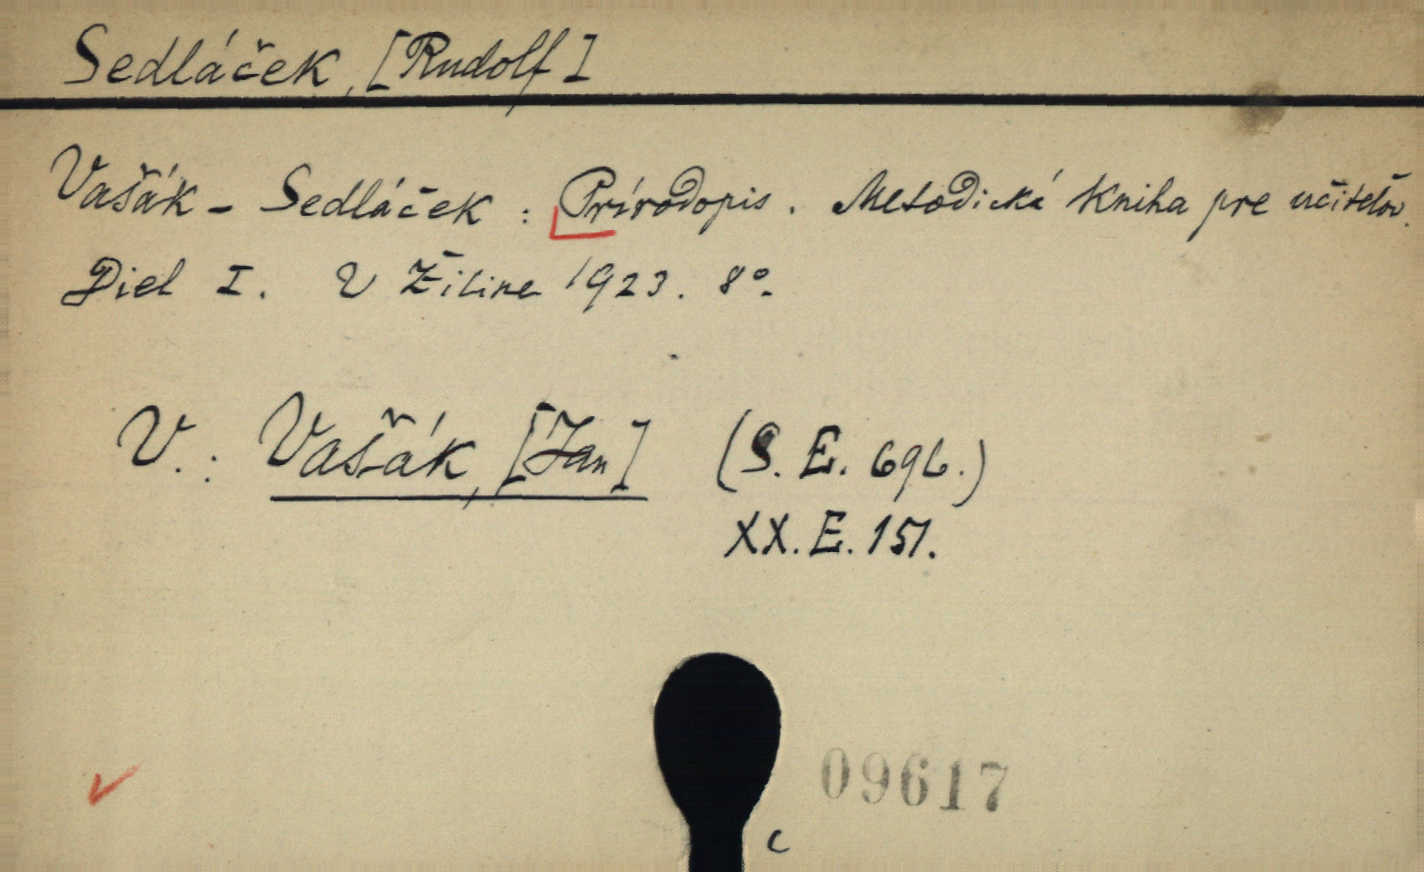 Sedláček, [Rudolf]
Vašák - Sedláček : Prírodopis. Metodická kniha pre učiteľov.
Diel I. V Žiline 1923. 8°.
V.: Vašák, [Jan] (S. E. 696.)
XX. E. 151.
09617
c